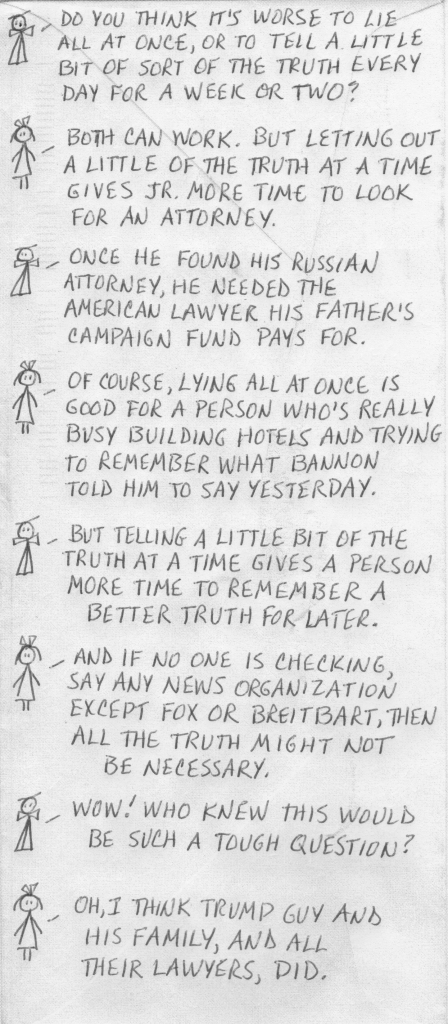 DO YOU THINK IT'S WORSE TO LIE
ALL AT ONCE, OR TO TELL A LITTLE
BIT OF SORT OF THE TRUTH EVERY
DAY FOR A WEEK OR TWO?
BOTH CAN WORK. BUT LETTING OUT
A LITTLE OF THE TRUTH AT A TIME
GIVES JR. MORE TIME TO LOOK
FOR AN ATTORNEY.
ONCE HE FOUND HIS RUSSIAN
ATTORNEY, HE NEEDED THE
AMERICAN LAWYER HIS FATHER'S
CAMPAIGN FUND PAYS FOR.
OF COURSE, LYING ALL AT ONCE IS
GOOD FOR A PERSON WHO'S REALLY
BUSY BUILDING HOTELS AND TRYING
TO REMEMBER WHAT BANNON
TOLD HIM TO SAY YESTERDAY.
BUT TELLING A LITTLE BIT OF THE
TRUTH AT A TIME GIVES A PERSON
MORE TIME TO REMEMBER A
BETTER TRUTH FOR LATER.
AND IF NO ONE IS CHECKING,
SAY ANY NEWS ORGANIZATION
EXCEPT FOX OR BREITBART, THEN
ALL THE TRUTH MIGHT NOT
BE NECESSARY.
WOW! WHO KNEW THIS WOULD
BE SUCH A TOUGH QUESTION?
OH, I THINK TRUMP GUY AND
HIS FAMILY, AND ALL
THEIR LAWYERS, DID.